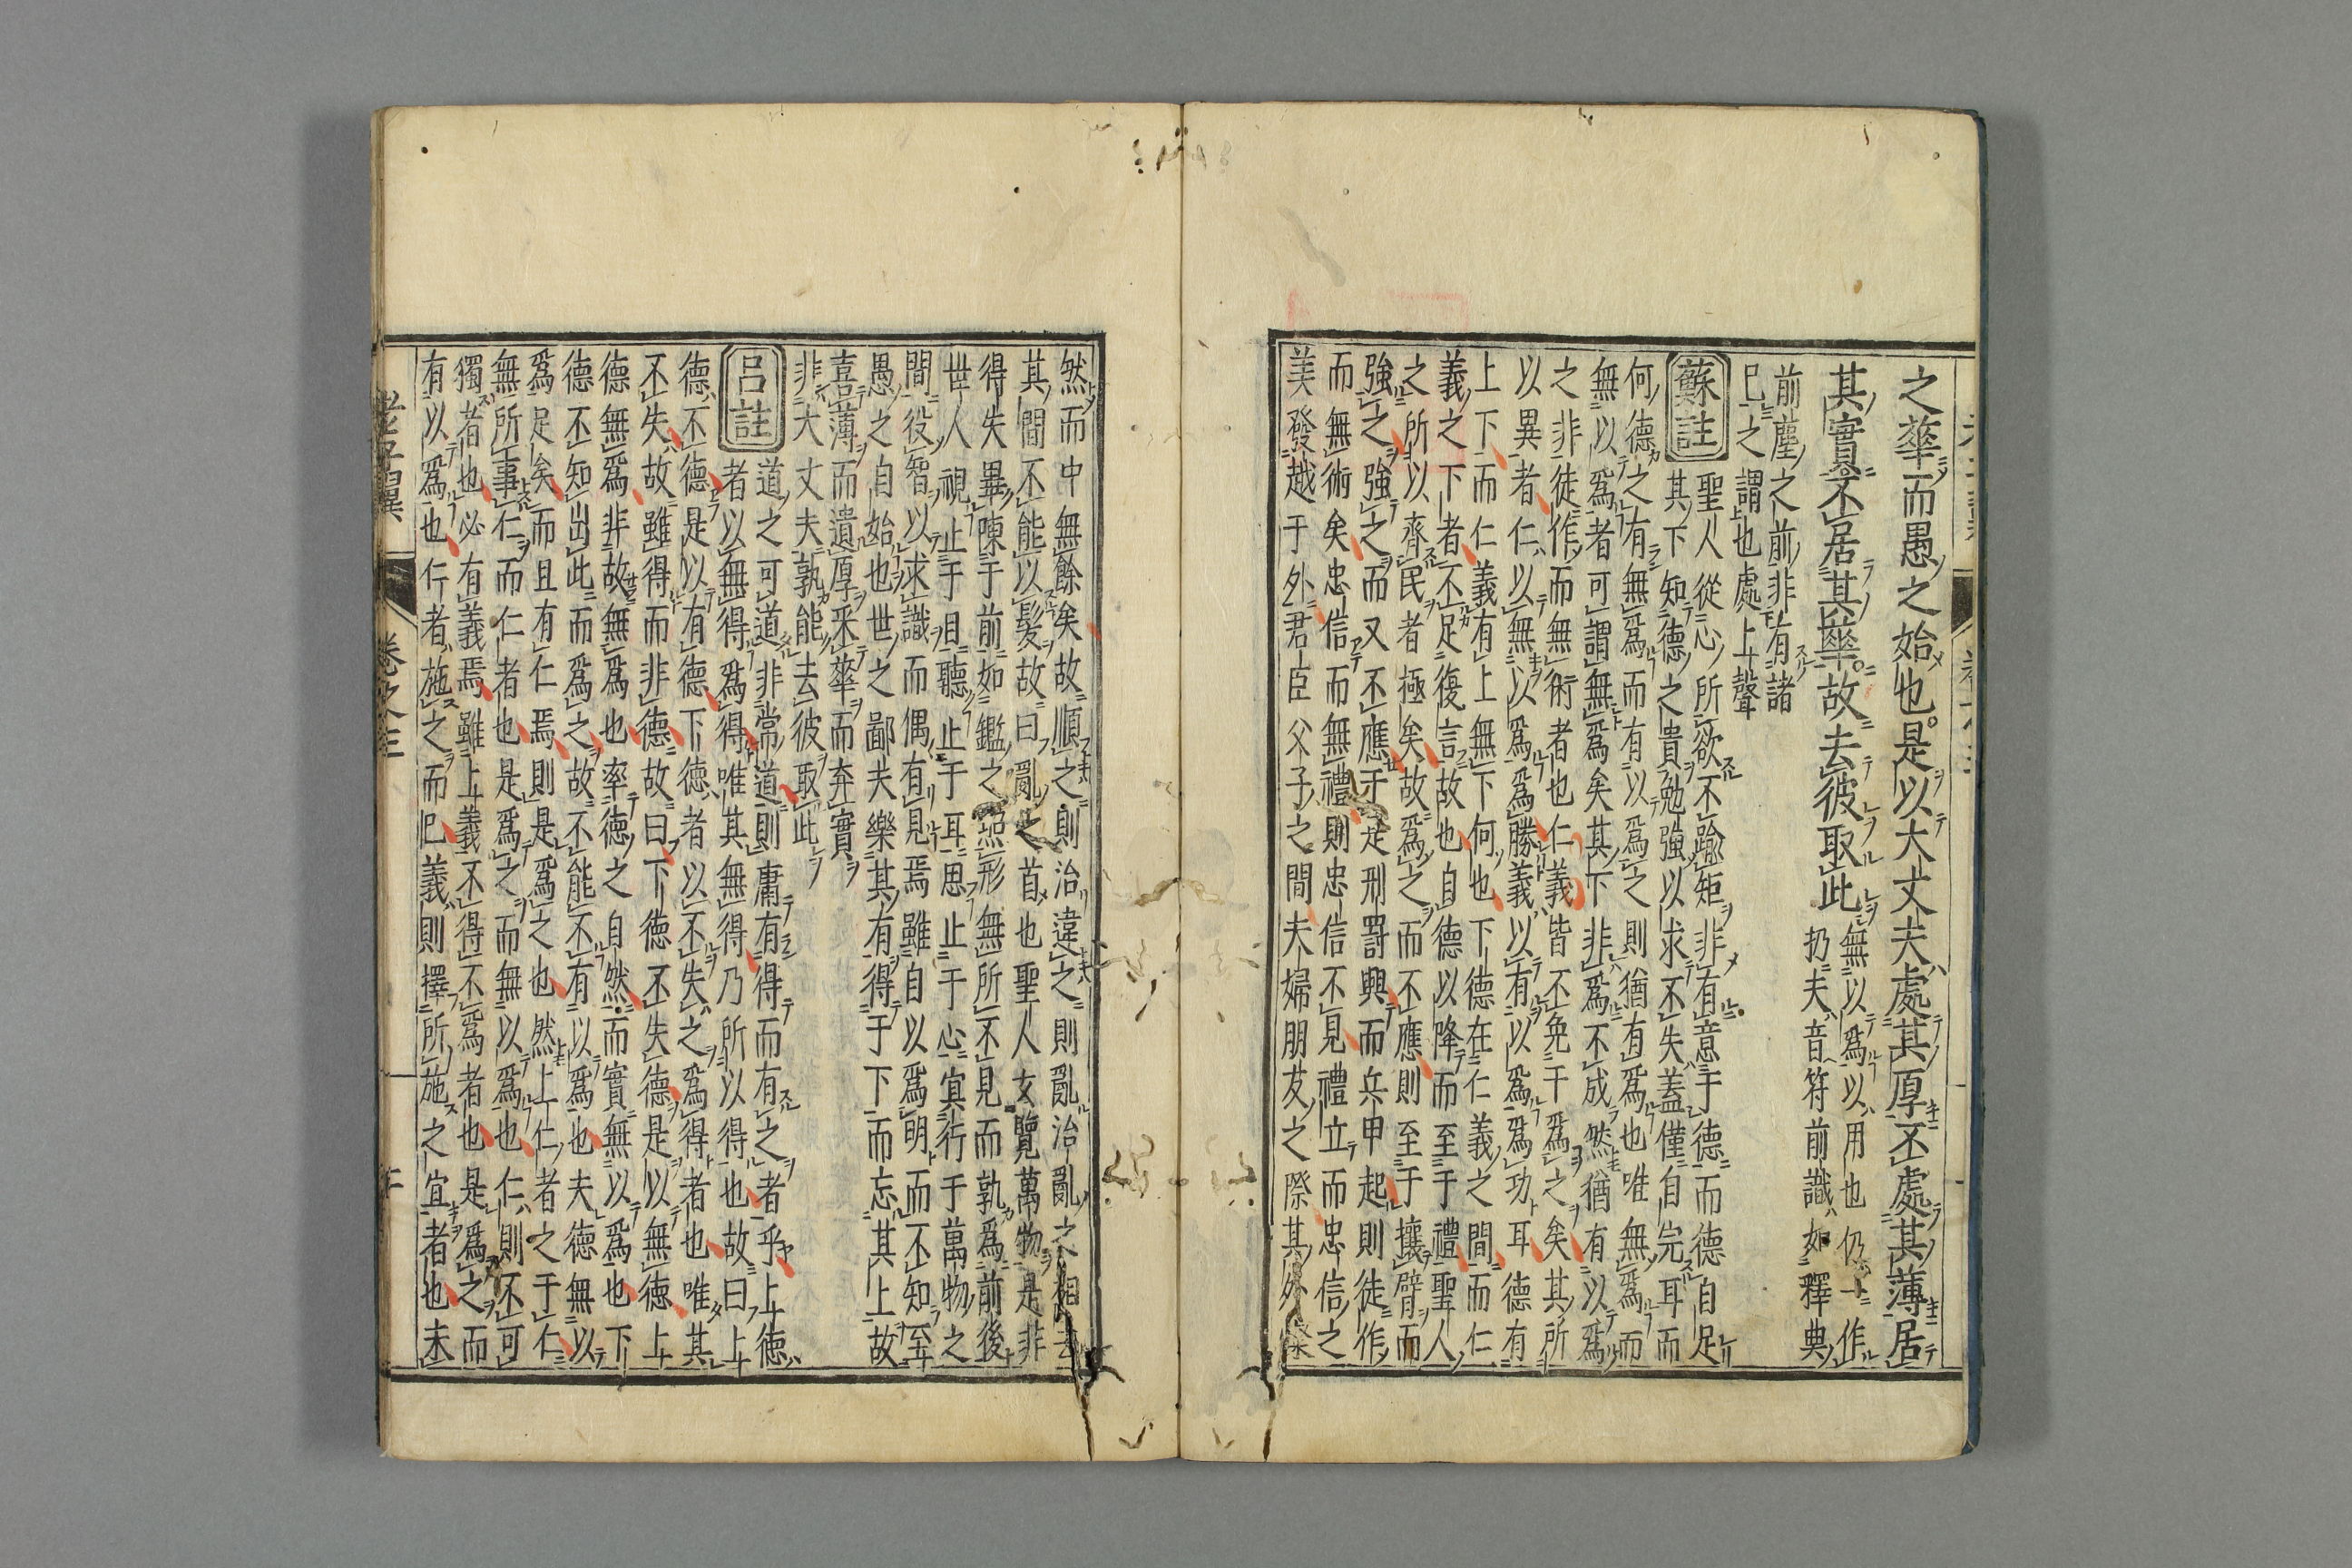 之華而愚之始也是以大丈夫處其厚不處其薄居
其實不居其華故去彼取此
無以爲以用也仍一作
扔夫音符前識如釋典
前塵之前非有諸
已之謂也處上聲
蘇註
聖人從心所欲不踰矩非有意于德而德自足
其下知德之貴勉強以求不失蓋僅自完耳而
何德之有無爲而有以爲之則猶有爲也唯無爲而
無以爲者可謂無爲矣其下非爲不成然猶有以爲
之非徒作而無術者也仁義皆不免于爲之矣其所
以異者仁以無以爲爲勝義以有以爲爲功耳德有
上下而仁義有上無下何也下德在仁義之間而仁
義之下者不足復言故也自德以降而至于禮聖人
之所以齊民者極矣故爲之而不應則至于攘臂而
強之強之而又不應于是刑罰興而兵甲起則徒作
而無術矣忠信而無禮則忠信不見禮立而忠信之
美發越于外君臣父子之間夫婦朋友之際其外燦
然而中無餘矣故順之則治違之則亂治亂之相去
其間不能以髮故曰亂之首也聖人玄覽萬物是非
得失畢陳于前如鑑之照形無所不見而孰爲前後
世人視止于目聽止于耳思止于心宜行于萬物之
間役智以求識而偶有見焉雖自以爲明而不知至
愚之自始也世之鄙夫樂其有得于下而忘其上故
喜薄而遺厚采華而弃實
非大丈夫孰能去彼取此
呂註
道之可道非常道則庸有得而有之者乎上德
者以無得爲得唯其無得乃所以得也故曰上
德不德是以有德下德者以不失之爲得者也唯其
不失故雖得而非德故曰下德不失德是以無德上
德無爲非故無爲也率德之自然而實無以爲也下
德不知出此而爲之故不能不有以爲也夫德無以
爲足矣而且有仁焉則是爲之也然上仁者之于仁
無所事仁而仁者也是爲之而無以爲也仁則不可
獨者也必有義焉雖上義不得不爲者也是爲之而
有以爲也仁者施之而已義則擇所施之宜者也未
老子翼
卷之三